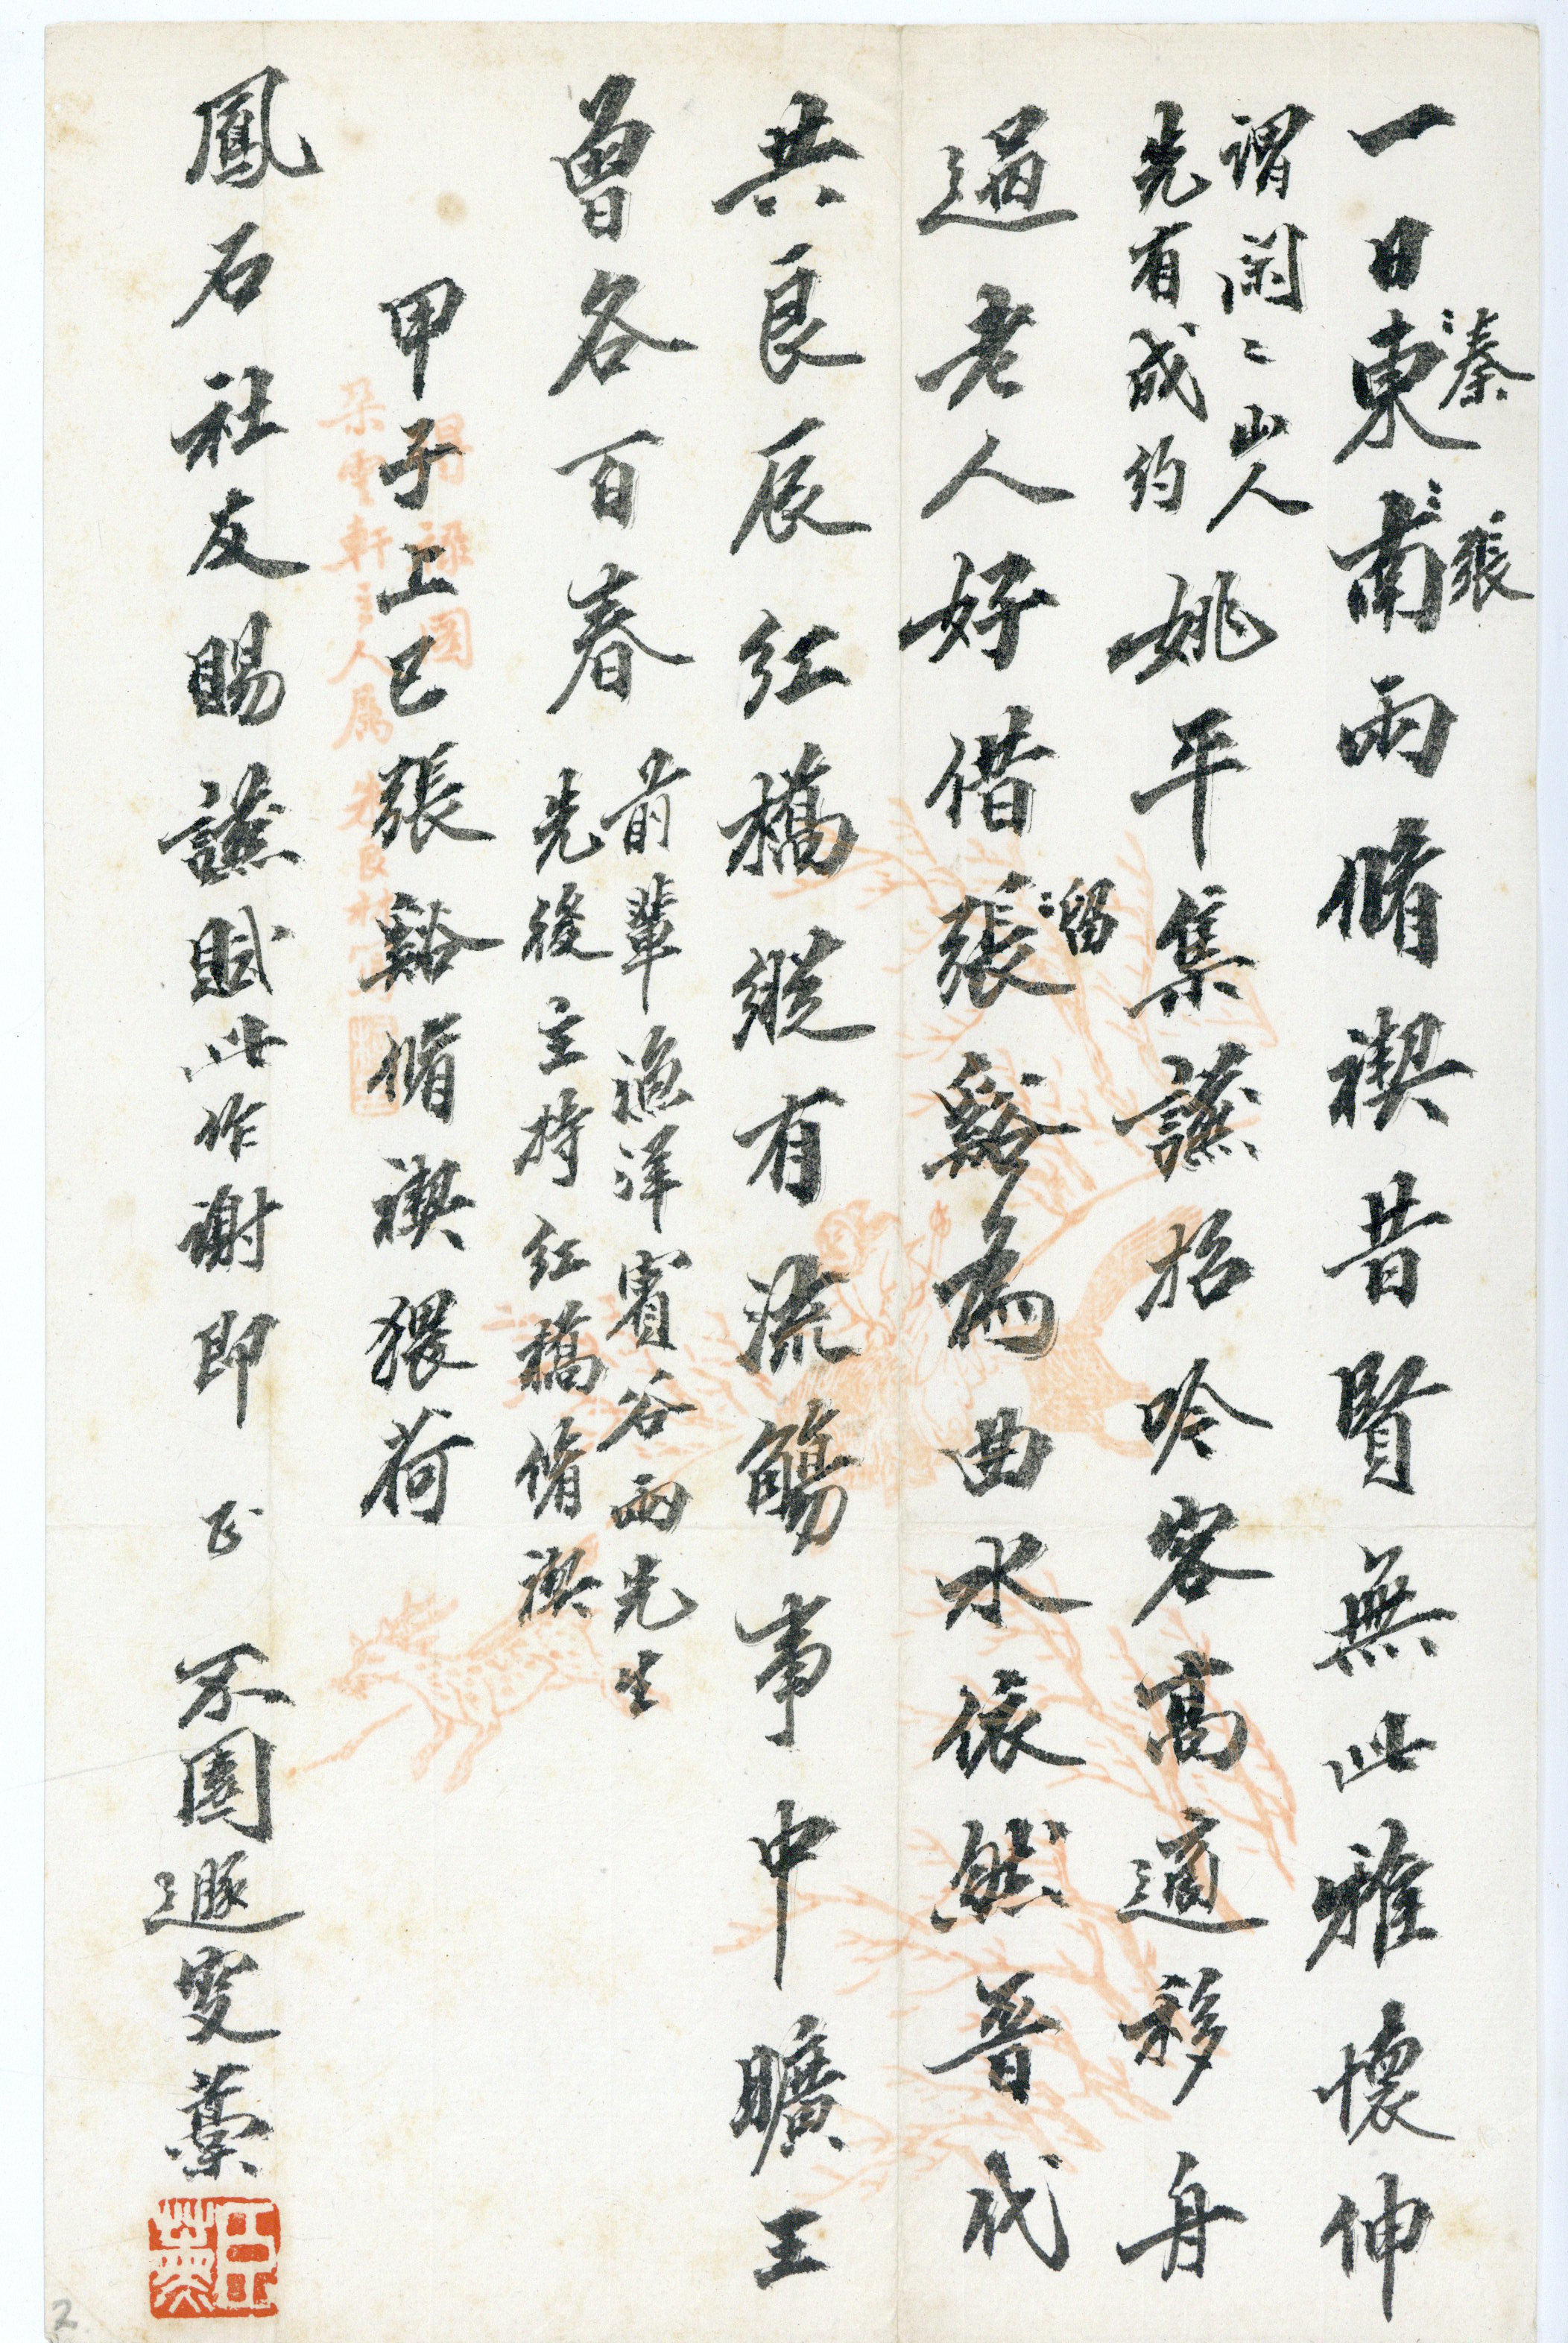 一日東南兩脩禊昔賢無此雅懷伸
秦
張
謂閑〻山人
先有成約
姚平集讌招吟客高適移舟
過老人好借張谿為曲水依然晉代
留
共良辰紅橋縱有流觴事中曠王
曾各百春
前輩漁洋賓谷兩先生
先後主持紅橋脩禊
甲子上巳張谿脩禊猥荷
鳳石社友賜讌賦此作謝即 正 不園遯叟藁
得祿圖
朵雲軒主人屬 朱良材寫
2